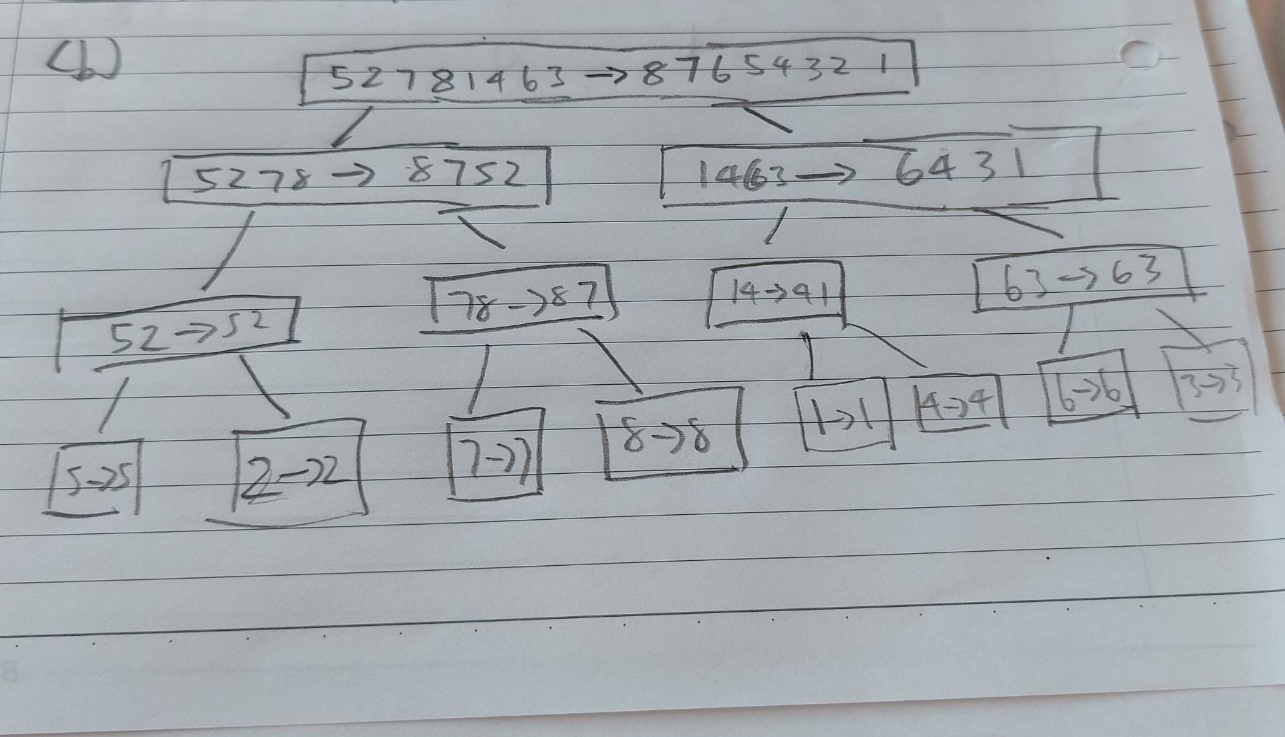 (b)
52781463→87654321
5278→8752
1463→6431
52→52
78→87
14→41
63→63
5→5
2→2
7→7
8→8
1→1
4→4
6→6
3→3